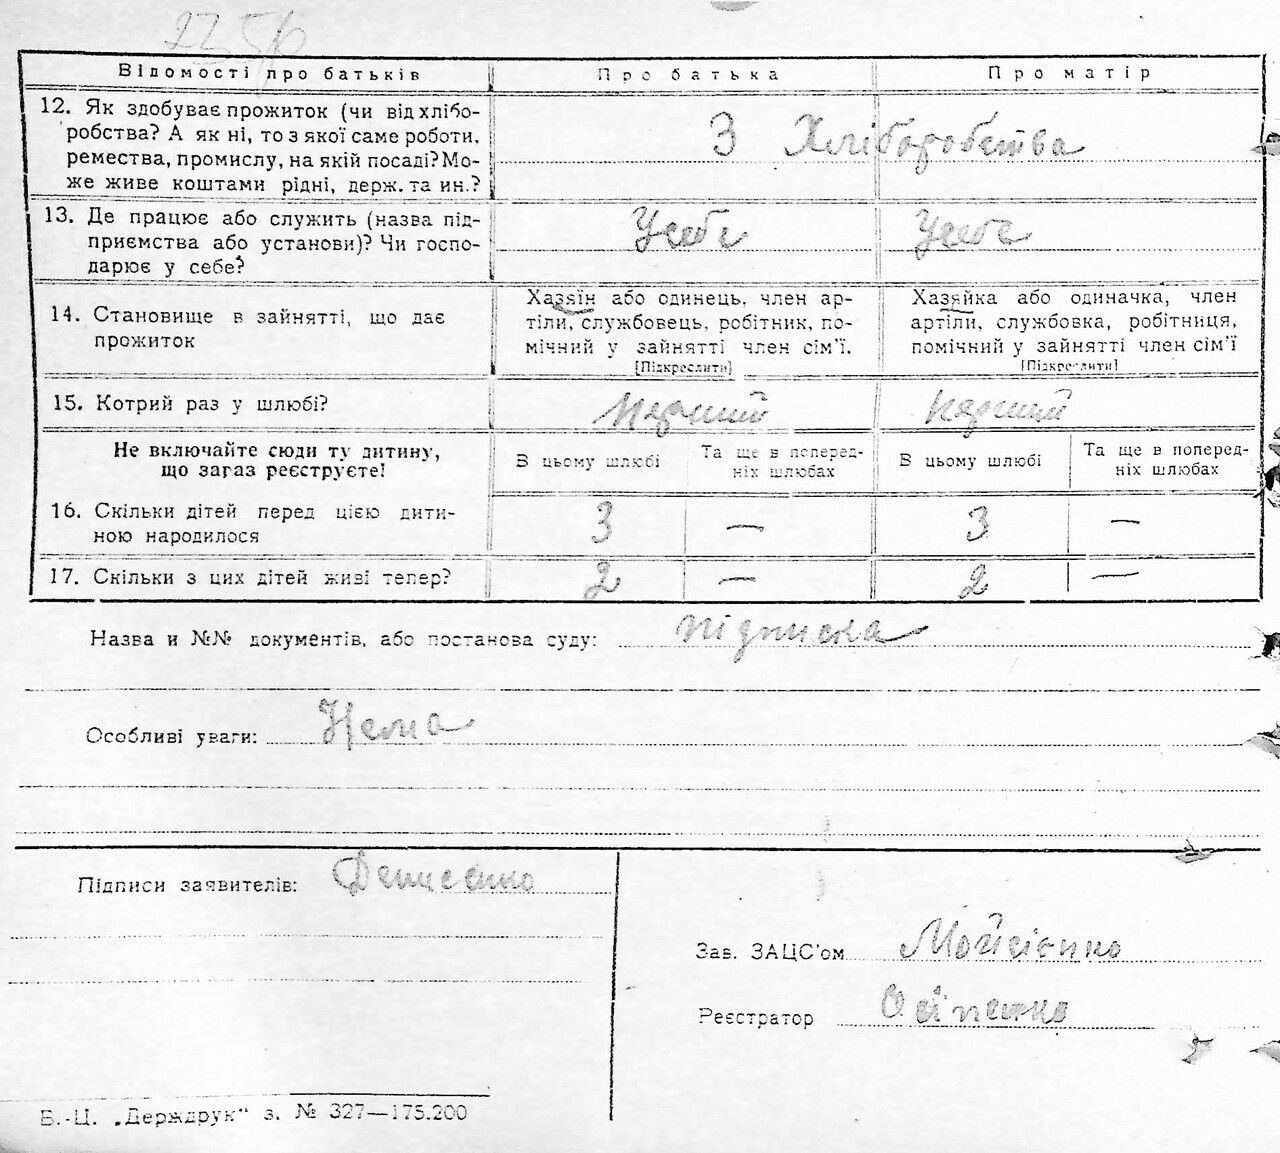 2356
Відомості про батьків Про батька Про матір
12. Як здобуває прожиток (чи від хлібо-
робства? А як ні, то з якої саме роботи,
ремества, промислу, на якій посаді? Мо-
же живе коштами рідні, держ. та ин.?
З Хліборобства
13. Де працює або служить (назва під-
приємства або установи)? Чи госпо-
дарює у себе?
Усебе Усебе
14. Становище в зайнятті, що дає
прожиток
Хазяїн або одинець, член ар-
тіли, службовець, робітник, по-
мічний у зайнятті член сім'ї.
[Підкреслити]
Хазяйка або одиначка, член
артіли, службовка, робітниця,
помічний у зайнятті член сім'ї
[Підкреслити]
15. Котрий раз у шлюбі? перший перший
Не включайте сюди ту дитину,
що зараз реєструєте!
В цьому шлюбі
Та ще в поперед-
ніх шлюбах
В цьому шлюбі
Та ще в поперед-
ніх шлюбах
16. Скільки дітей перед цією дити-
ною народилося
3 — 3 —
17. Скільки з цих дітей живі тепер? 2 — 2 —
Назва и №№ документів, або постанова суду: підписка
Особливі уваги: Нема
Підписи заявителів: Денисенко
Зав. ЗАЦС'ом Мойсієнко
Реєстратор Осіпенко
Б.-Ц. „Держдрук" з. № 327—175.200